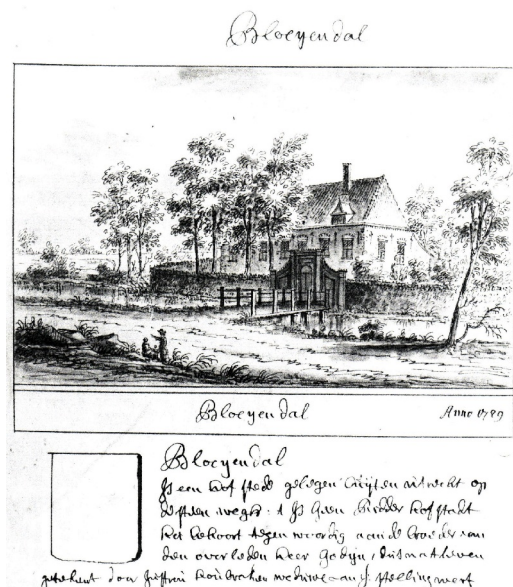 Bloeyendal
Bloeyendal
Anno 1789
Bloeyendal
Is een hof stede gelegen buijten uitrecht op
de steen wegh : t Is geen Ridder hof stadt
het behoort tegen woordig aan de broeder van
den over leden heer Godijn /
getekent door